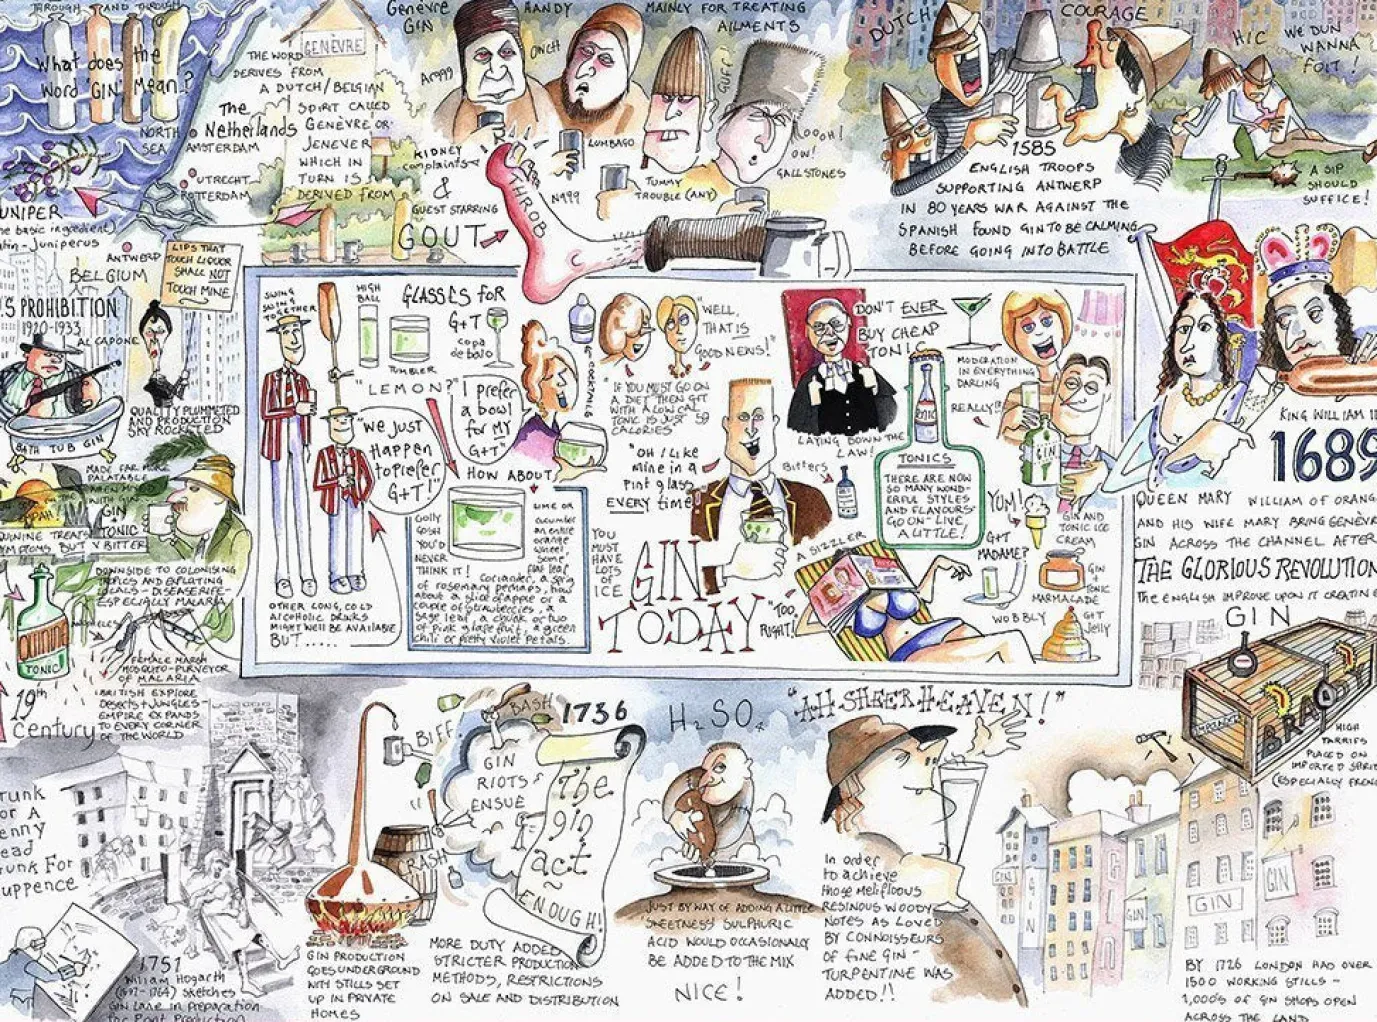 THROUGH AND THROUGH
What does the
Word 'GIN' Mean?
NORTH
SEA
THE WORD
DERIVES FROM
A DUTCH/BELGIAN
SPIRIT CALLED
GENÈVRE OR
JENEVER
WHICH IN
TURN IS
DERIVED FROM
GENÈVRE
The
Netherlands
AMSTERDAM
UTRECHT
ROTTERDAM
UNIPER
(he basic ingredient)
atin - Juniperus
ANTWERP
BELGIUM
Genèvre
GIN
HANDY
MAINLY FOR TREATING
AILMENTS
Arggg
OUCH
GUFF!
KIDNEY
complaints
&
GUEST STARRING
GOUT
THROB
LUMBAGO
N999
TUMMY
TROUBLE (ANY)
OOOH!
OW!
GALLSTONES
DUTCH
COURAGE
HIC
WE DUN
WANNA
FOIT!
1585
ENGLISH TROOPS
SUPPORTING ANTWERP
IN 80 YEARS WAR AGAINST THE
SPANISH FOUND GIN TO BE CALMING
BEFORE GOING INTO BATTLE
A SIP
SHOULD
SUFFICE!
LIPS THAT
TOUCH LIQUOR
SHALL NOT
TOUCH MINE
.S PROHIBITION
1920-1933
AL CAPONE
BATH TUB GIN
QUALITY PLUMMETED
AND PRODUCTION
SKY ROCKETED
SWING
SWING
TOGETHER
HIGH
BALL
GLASSES FOR
G+T
copa
de balo
TUMBLER
"LEMON?"
"We just
Happen
to prefer
G+T!"
I prefer
a bowl
for MY
G+T"
COCKTAILS
HOW ABOUT
OTHER LONG, COLD
ALCOHOLIC DRINKS
MIGHT WELL BE AVAILABLE
BUT ......
GOLLY
GOSH
YOU'D
NEVER
THINK IT!
LIME OR
cucumber
an entire
orange
wheel,
some
Coriander, a sprig
of rosemary perhaps, how
about a slice of apple or a
couple of strawberries, a
sage leaf, a chunk or two
of pink grapefruit, a green
chili or pretty violet petals.
YOU
MUST
HAVE
LOTS
OF
ICE
"WELL,
THAT IS
GOOD NEWS!"
"IF YOU MUST GO ON
A DIET THEN G+T
WITH A LOW CAL
TONIC IS JUST 59
CALORIES"
"OH I LIKE
mine in a
Pint glass
EVERY time!"
GIN
TODAY
DON'T EVER
BUY CHEAP
TONIC
LAYING DOWN THE
LAW!
Bitters
TONIC
TONICS
THERE ARE NOW
SO MANY WOND-
ERFUL STYLES
AND FLAVOURS-
GO ON - LIVE
A LITTLE!
MODERATION
IN EVERYTHING
DARLING
REALLY?
GIN
YUM!
GIN AND
TONIC ICE
CREAM
G+T
MADAME?
GIN
+
TONIC
MARMALADE
WOBBLY
G+T
Jelly
A SIZZLER
"TOO
RIGHT!"
KING WILLIAM III
1689
QUEEN MARY
WILLIAM OF ORANG
AND HIS WIFE MARY BRING GENÈVR
GIN ACROSS THE CHANNEL AFTER
THE GLORIOUS REVOLUTION
THE ENGLISH IMPROVE UPON IT CREATING
GIN
HIGH
TARRIFS
PLACED ON
IMPORTED SPIRI
(ESPECIALLY FRENC
MADE FAR MORE
PALATABLE
WITH GIN
GIN
+
TONIC
QUININE TREATS
YMPTOMS BUT V BITTER
DOWNSIDE TO COLONISING
TROPICS AND EXPLOITING
LOCALS - DISEASE RIFE-
ESPECIALLY MALARIA
QUININE
TONIC
FEMALE MARSH
MOSQUITO-PURVEYOR
OF MALARIA
19th
century
BRITISH EXPLORE
Deserts + JUNGLES -
EMPIRE EXPANDS
TO EVERY CORNER
OF THE WORLD
runk
or A
enny
ead
runk For
uppence
1751
William Hogarth
(1697-1764) sketches
GIN LANE in preparation
for Print Production
GIN PRODUCTION
GOES UNDERGROUND
NITY STILLS SET
UP IN PRIVATE
HOMES
BIFF
BASH
CRASH
GIN
RIOTS
ENSUE
1736
The
gin
act
~
ENOUGH!
MORE DUTY ADDED
STRICTER PRODUCTION
METHODS, RESTRICTIONS
ON SALE AND DISTRIBUTION
H2SO4
JUST BY WAY OF ADDING A LITTLE
'SWEETNESS' SULPHURIC
ACID WOULD OCCASIONALLY
BE ADDED TO THE MIX
NICE!
"AH SHEER HEAVEN!"
In order
to achieve
those mellifluous
RESINOUS WOODY
NOTES AS LOVED
BY CONNOISSEURS
OF FINE GIN -
TURPENTINE WAS
ADDED!!
GIN
GIN
GIN
GIN
BY 1726 LONDON HAD OVER
1500 WORKING STILLS -
1,000'S OF GIN SHOPS OPEN
ACROSS THE LAND